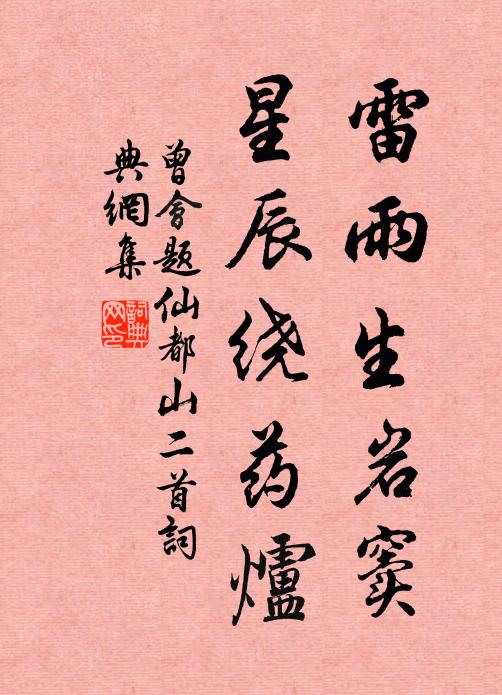 雷雨生岩窦
星辰绕药爐
曾會题仙都山二首詞
典網集
詞典网印